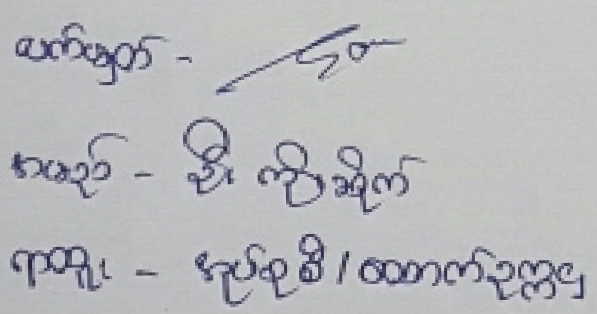 လက်မှတ် -
အမည် - ဦး ကိုဆိုက်
ရာထူး - အုပ်စု မှီ / ထောက်ဥက္ကဌ